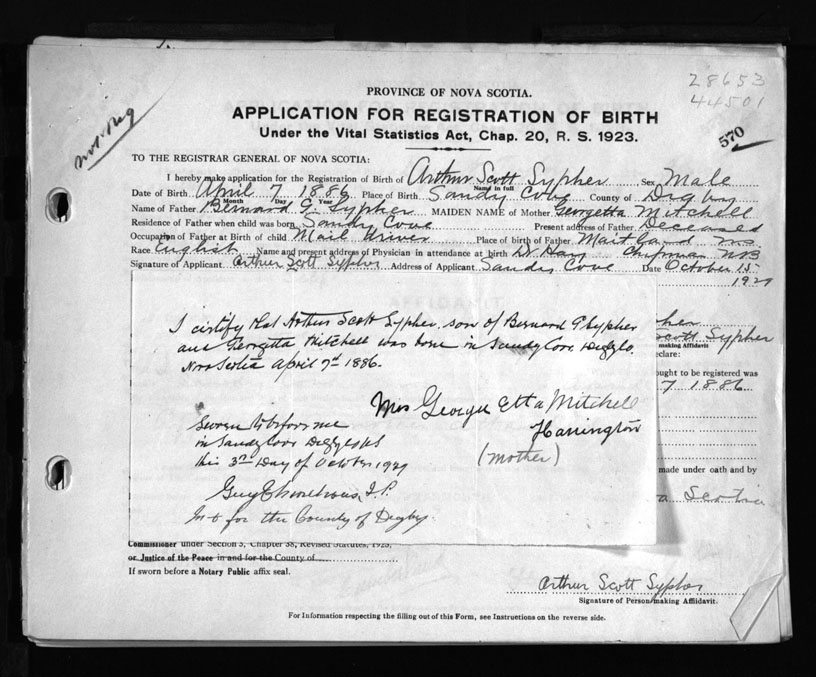 28653
44501
Not Reg
PROVINCE OF NOVA SCOTIA.
APPLICATION FOR REGISTRATION OF BIRTH
Under the Vital Statistics Act, Chap. 20, R. S. 1923.
570
TO THE REGISTRAR GENERAL OF NOVA SCOTIA:
I hereby make application for the Registration of Birth of Arthur Scott Sypher Sex Male
Name in full
Date of Birth April 7 1886 Place of Birth Sandy Cove County of Digby
Month Day Year
Name of Father Bernard G. Sypher MAIDEN NAME of Mother Georgetta Mitchell
Residence of Father when child was born Sandy Cove Present address of Father Deceased
Occupation of Father at Birth of child Mail Driver Place of birth of Father Maitland NS
Race English Name and present address of Physician in attendance at birth Dr Chipman NB
Signature of Applicant Arthur Scott Sypher Address of Applicant Sandy Cove Date October 15
1929
I certify that Arthur Scott Sypher, son of Bernard G Sypher
and Georgetta Mitchell was born in Sandy Cove, Digby Co.
Nova Scotia April 7th 1886.
Mrs Georgie Etta Mitchell
Harrington
(mother)
Sworn to before me
in Sandy Cove Digby Co NS
this 3rd Day of October 1929
Guy J.P.
In & for the County of Digby.
pher
Scott Sypher
making Affidavit
eclare:
ought to be registered was
7 1886
made under oath and by
a Scotia
Commissioner under Section 3, Chapter 38, Revised Statutes, 1923,
or Justice of the Peace in and for the County of
If sworn before a Notary Public affix seal.
Arthur Scott Sypher
Signature of Person making Affidavit.
For Information respecting the filling out of this Form, see Instructions on the reverse side.